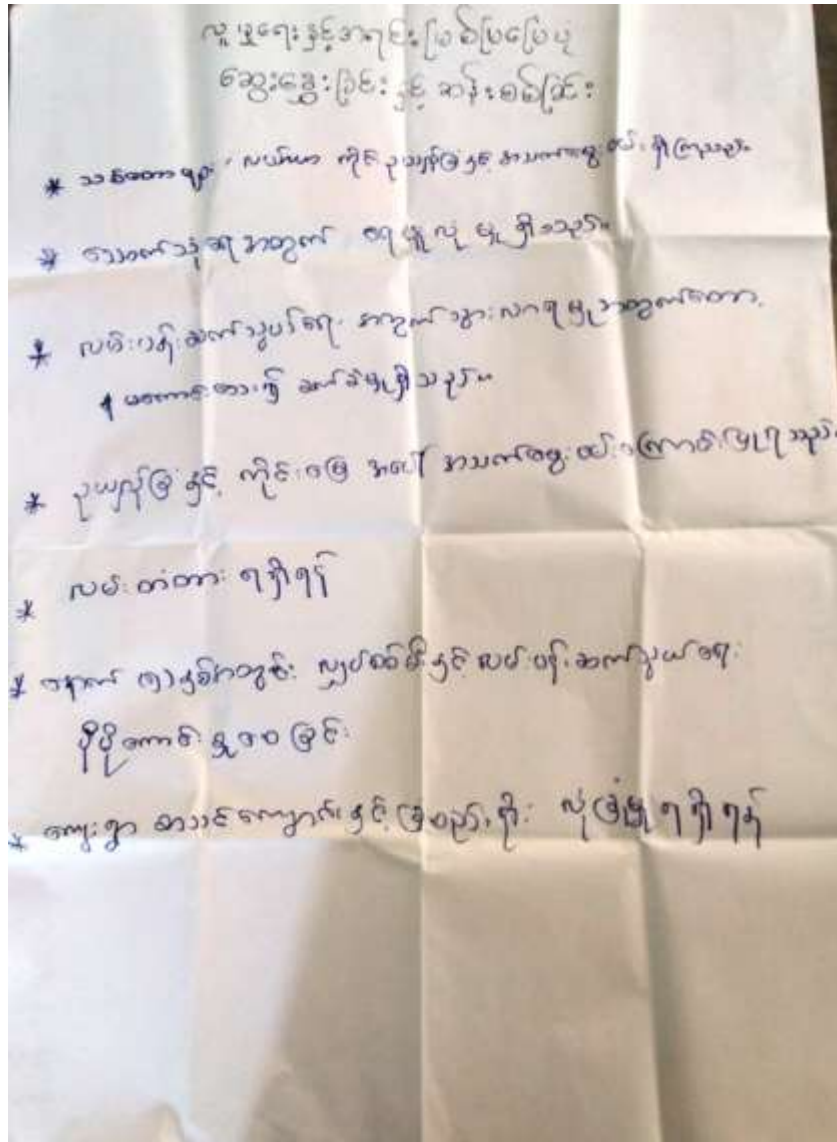 လူမှုရေးနှင့်အရင်းမြစ်ပြမြေပုံ
ဆွေးနွေးခြင်းနှင့် ဆန်းစစ်ခြင်း
* သစ်တောများ၊ လယ်ယာ ကိုင်းဥယျာဉ်ခြံနှင့် အသက်မွေးဝမ်း ရှိကြသည်။
* သောက်သုံးရေအတွက် ရေ မှု ရှိသည်။
* လမ်းပန်းဆက်သွယ်ရေး အတွက် သွားလာရမှုအတွက်တော့
မကောင်းတာ၍ ခက်ခဲမှုရှိသည်။
* ဥယျာဉ်ခြံနှင့် ကိုင်းမြေ အပေါ် အသက်မွေးဝမ်းကြောင်းပြုရသည်။
* လမ်းတံတား ရရှိရန်
* နောက် (၅)နှစ်အတွင်း လျှပ်စစ်မီးနှင့် လမ်းပန်းဆက်သွယ်ရေး
ပိုမိုကောင်းမွန်စေခြင်း
* ကျေးရွာ စာသင်ကျောင်းနှင့် ခြံစည်းရိုး လုံခြုံမှု ရရှိရန်